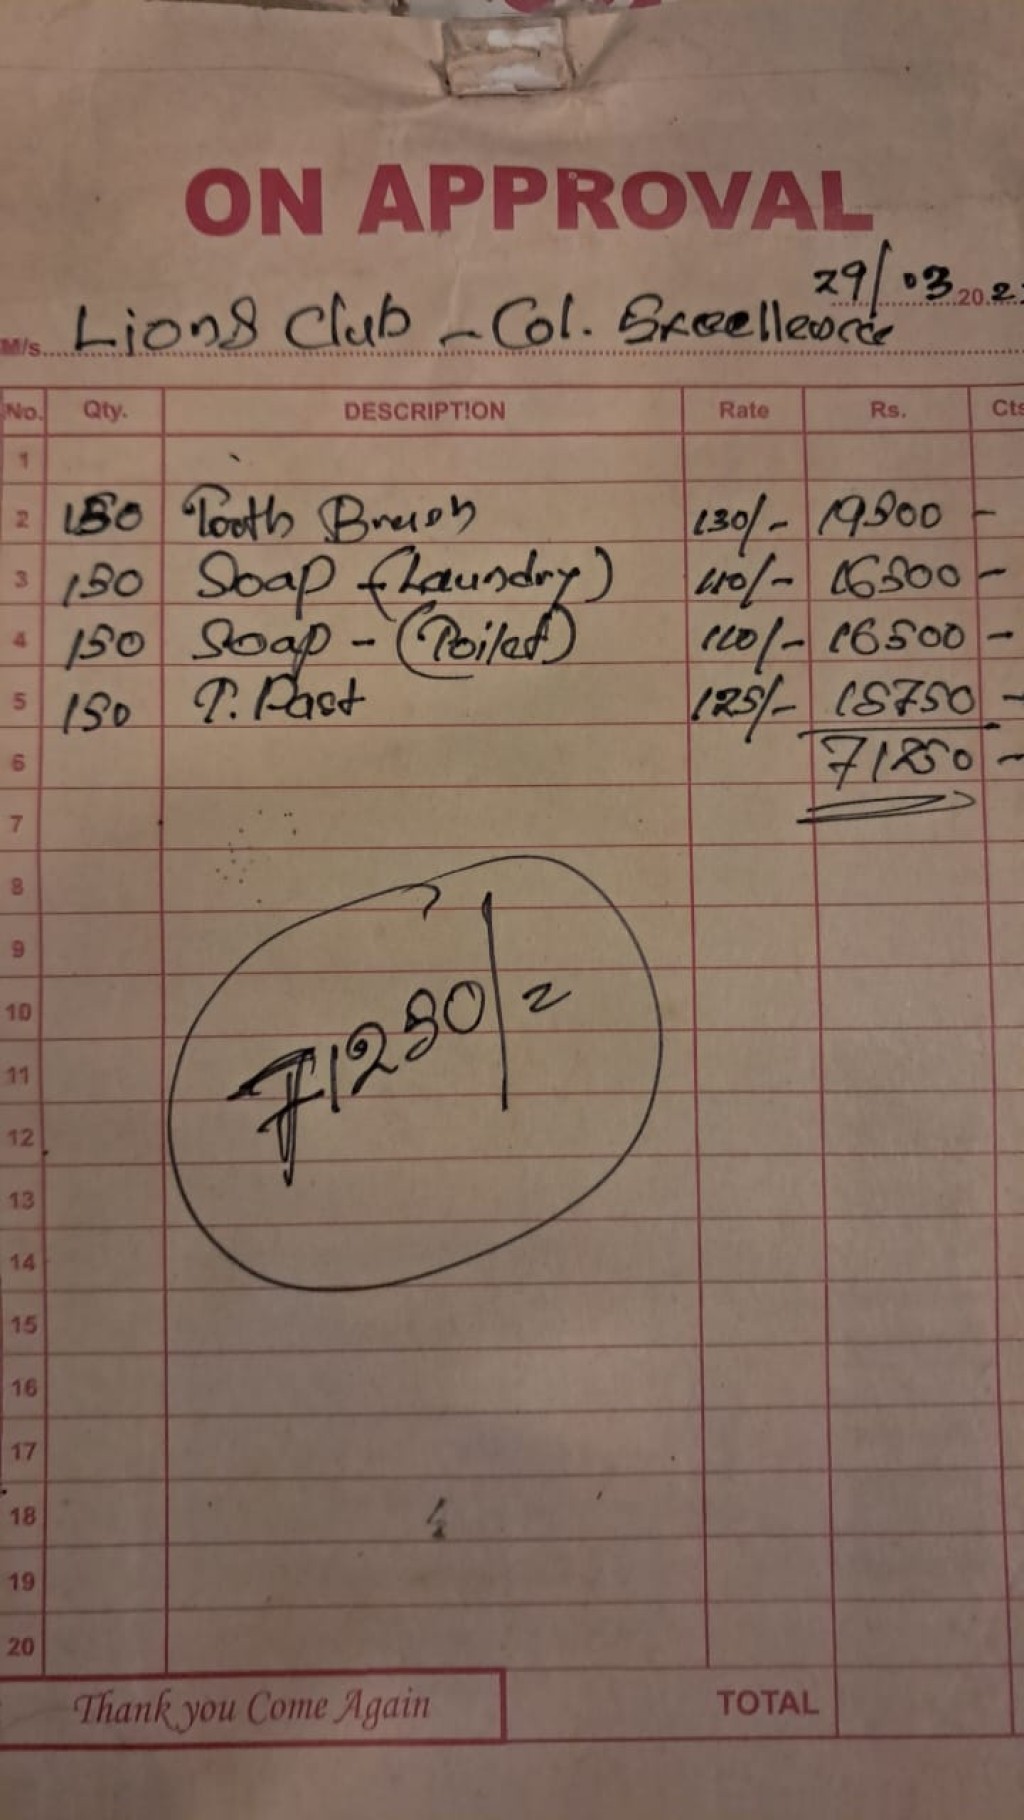 ON APPROVAL
29/.03 20.2
M/s. Lions Club - Col. Excellence
No. Qty. DESCRIPTION Rate Rs. Cts
1
2 150 Tooth Brush 130/- 19500 -
3 150 Soap - (Laundry) 110/- 16500 -
4 150 Soap - (Toilet) 110/- 16500 -
5 150 T. Past 125/- 18750 -
6 71250 -
7
8
9
10 71250/=
11
12
13
14
15
16
17
18
19
20
Thank you Come Again TOTAL